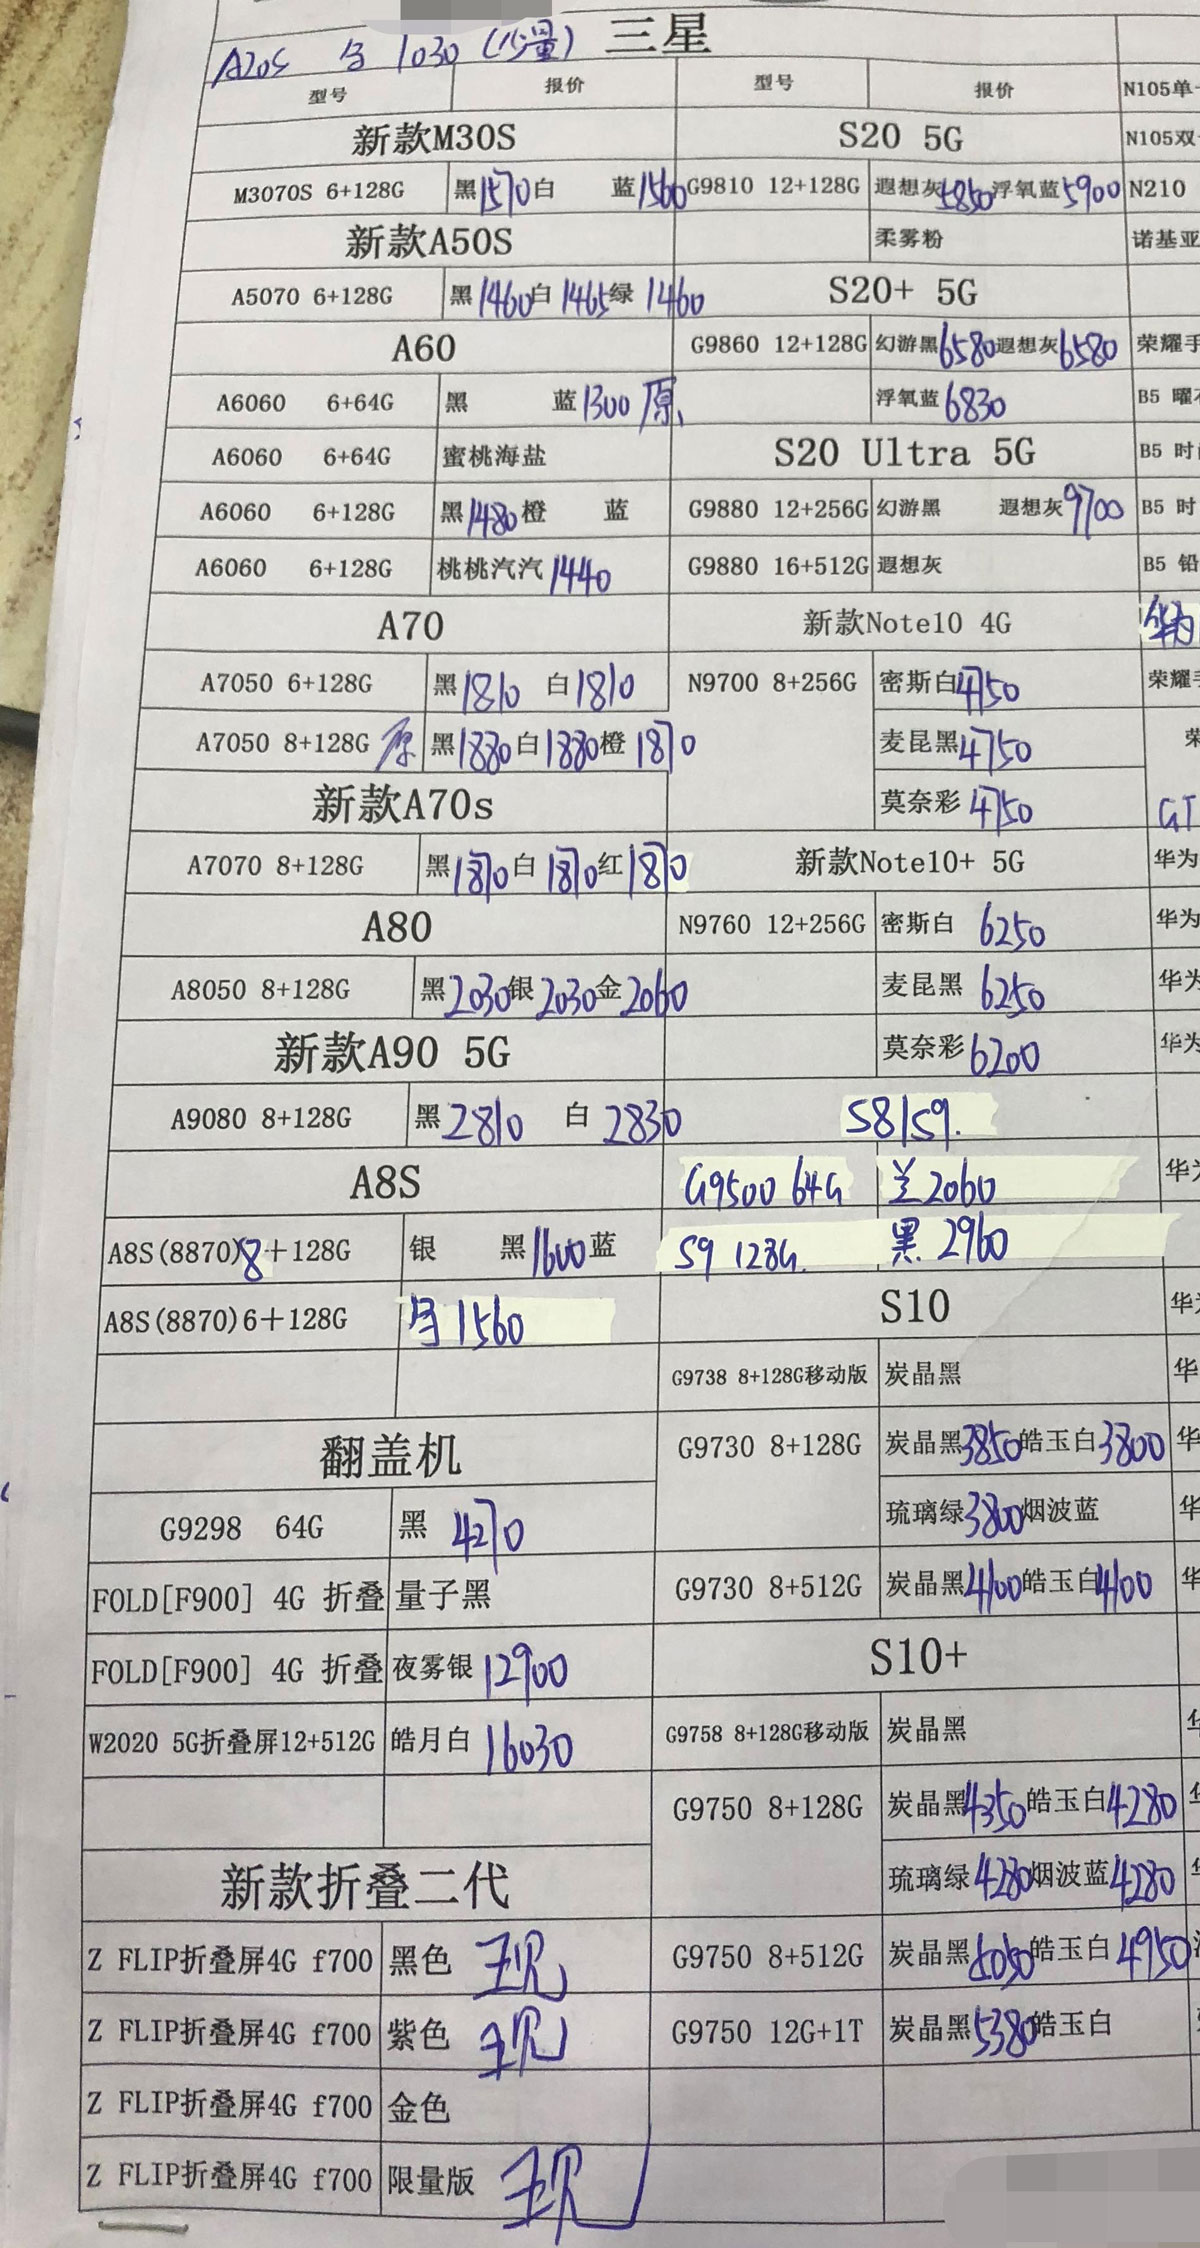 三星
A20S 1030 (少量)
型号 报价
新款M30S
M3070S 6+128G 黑1570白 蓝1560
新款A50S
A5070 6+128G 黑1460白1465绿1460
A60
A6060 6+64G 黑 蓝1300原
A6060 6+64G 蜜桃海盐
A6060 6+128G 黑1480橙 蓝
A6060 6+128G 桃桃汽汽1440
A70
A7050 6+128G 黑1810 白1810
A7050 8+128G原 黑1880白1880橙1870
新款A70s
A7070 8+128G 黑1870白1870红1870
A80
A8050 8+128G 黑2030银2030金2060
新款A90 5G
A9080 8+128G 黑2810 白2830
A8S
A8S(8870)8+128G 银 黑1600蓝
A8S(8870)6+128G 1560
翻盖机
G9298 64G 黑 4270
FOLD[F900] 4G 折叠 量子黑
FOLD[F900] 4G 折叠 夜雾银12900
W2020 5G折叠屏12+512G 皓月白 16030
新款折叠二代
Z FLIP折叠屏4G f700 黑色
Z FLIP折叠屏4G f700 紫色
Z FLIP折叠屏4G f700 金色
Z FLIP折叠屏4G f700 限量版
型号 报价
S20 5G
G9810 12+128G 遐想灰5850浮氧蓝5900
柔雾粉
S20+ 5G
G9860 12+128G 幻游黑6580遐想灰6580
浮氧蓝6830
S20 Ultra 5G
G9880 12+256G 幻游黑 遐想灰9700
G9880 16+512G 遐想灰
新款Note10 4G
N9700 8+256G 密斯白4750
麦昆黑4750
莫奈彩4750
新款Note10+ 5G
N9760 12+256G 密斯白 6250
麦昆黑 6250
莫奈彩6200
S8/S9.
G9500 64G 兰2060
S9 128G. 黑.2960
S10
G9738 8+128G移动版 炭晶黑
G9730 8+128G 炭晶黑3850皓玉白3800
琉璃绿3800烟波蓝
G9730 8+512G 炭晶黑4100皓玉白4100
S10+
G9758 8+128G移动版 炭晶黑
G9750 8+128G 炭晶黑4350皓玉白4280
琉璃绿4280烟波蓝4280
G9750 8+512G 炭晶黑5050皓玉白4950
G9750 12G+1T 炭晶黑5380皓玉白
N105单
N105双
N210
诺基亚
荣耀手
B5 曜
B5 时
B5 时
B5 铅
华为
荣耀
荣
GT
华为
华为
华为
华为
华
华
华
华
华
华
华